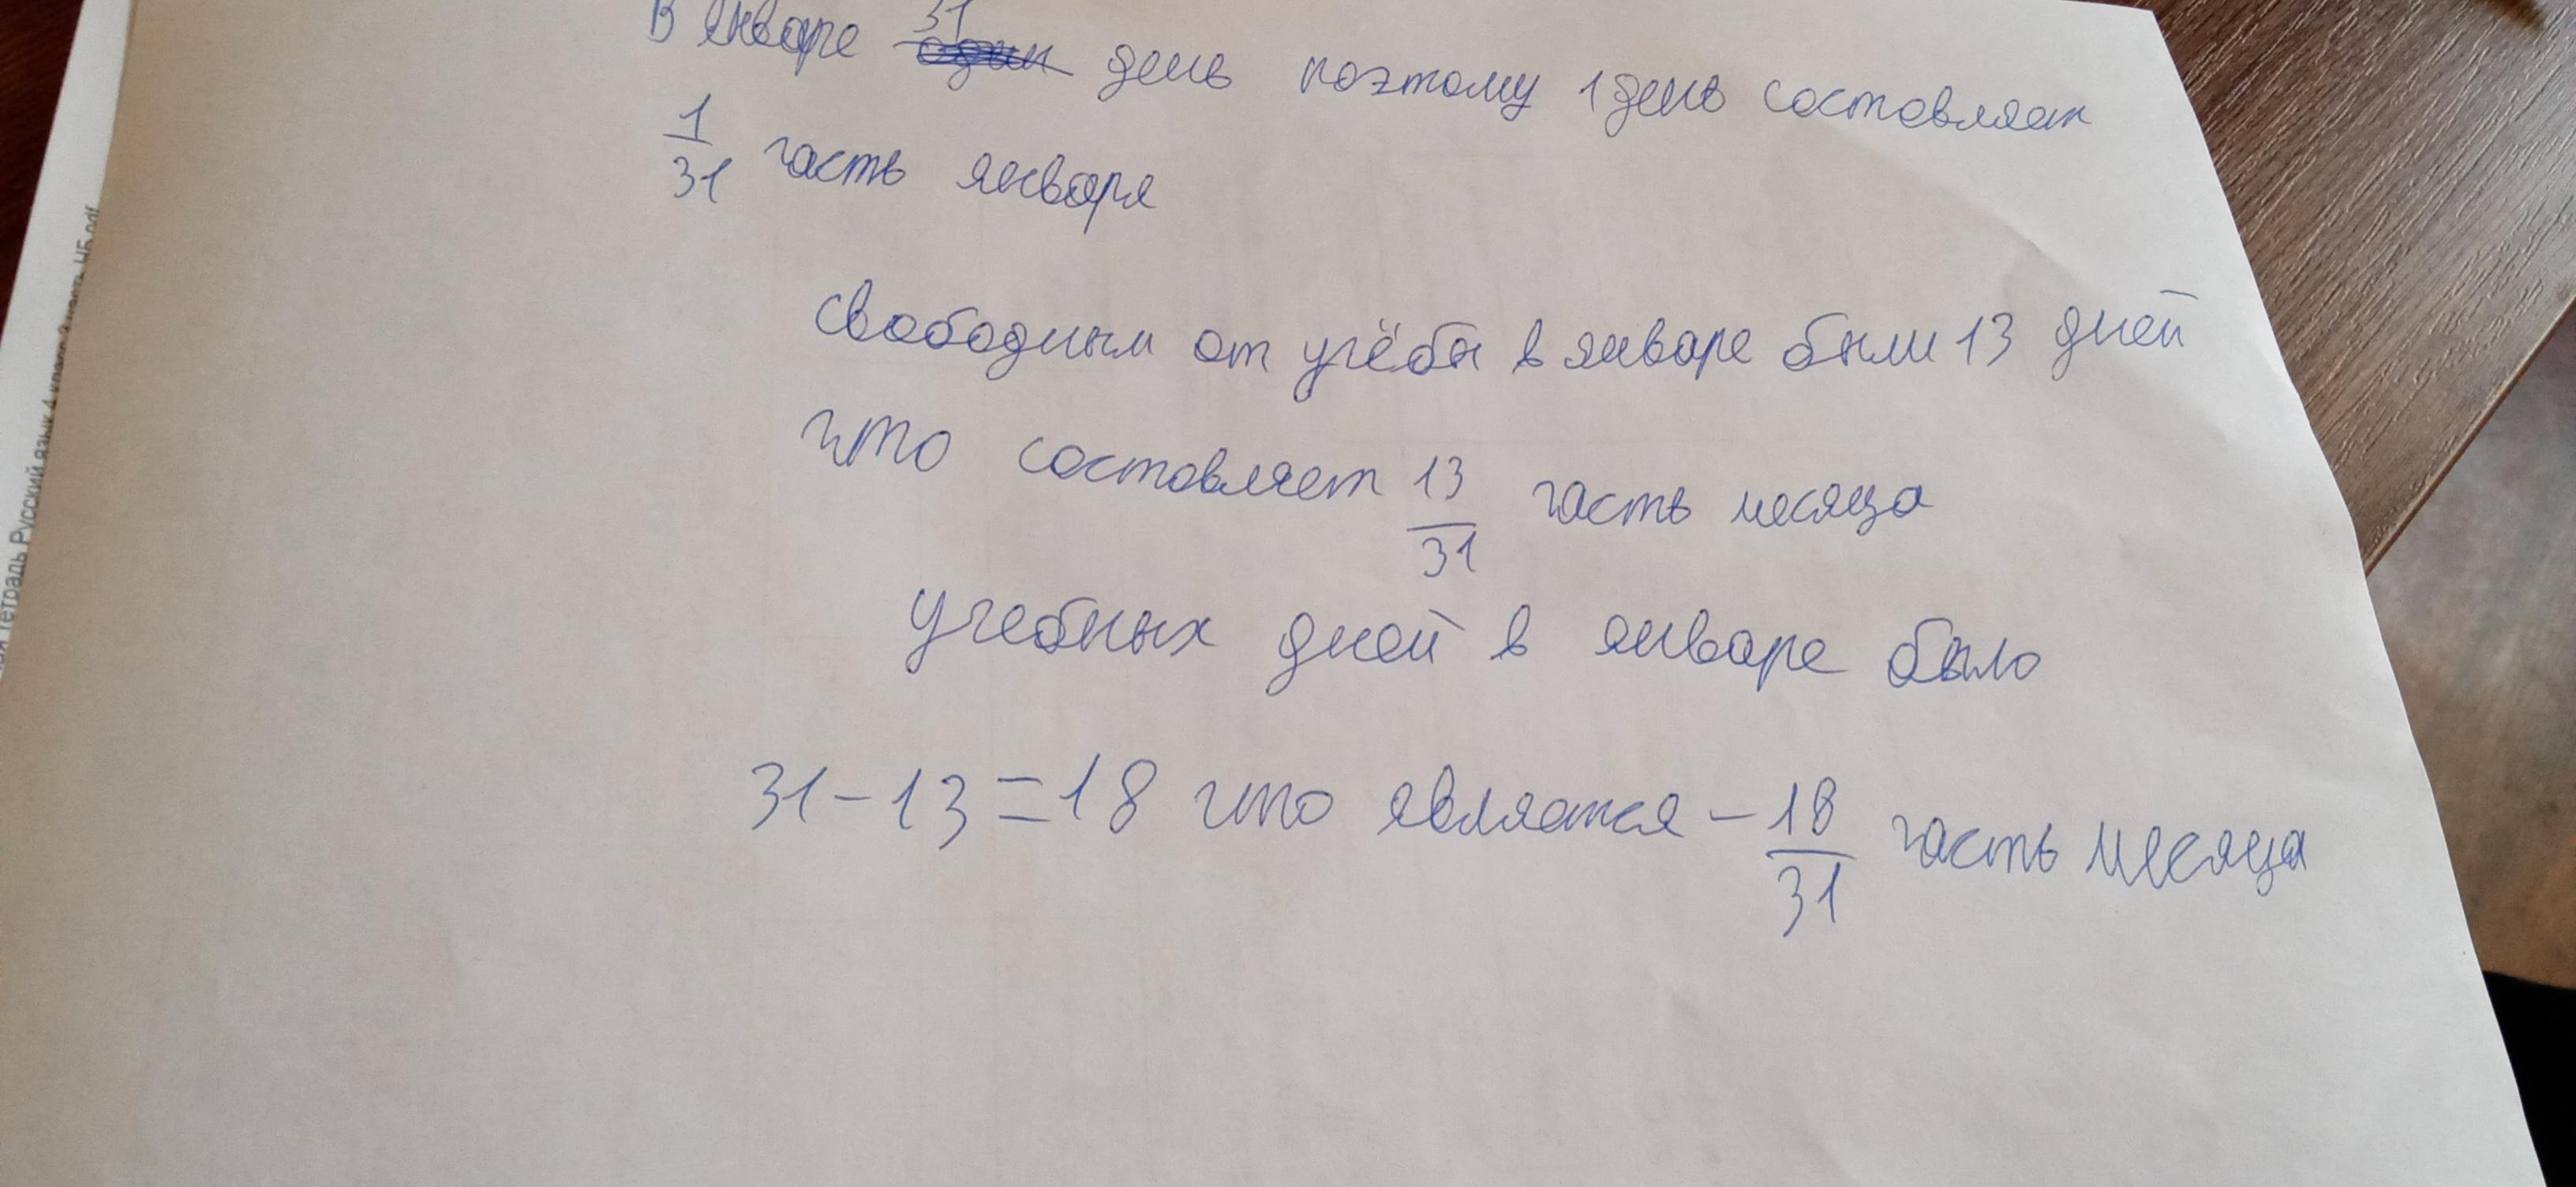 В январе 31 день поэтому 1 день составляет
1/31 часть января
свободным от учёбы в январе были 13 дней
что составляет 13/31 часть месяца
Учебных дней в январе было
31-13=18 что является - 18/31 часть месяца
тетрадь Русский язык 4 класс 2 часть ЧБ.pdf